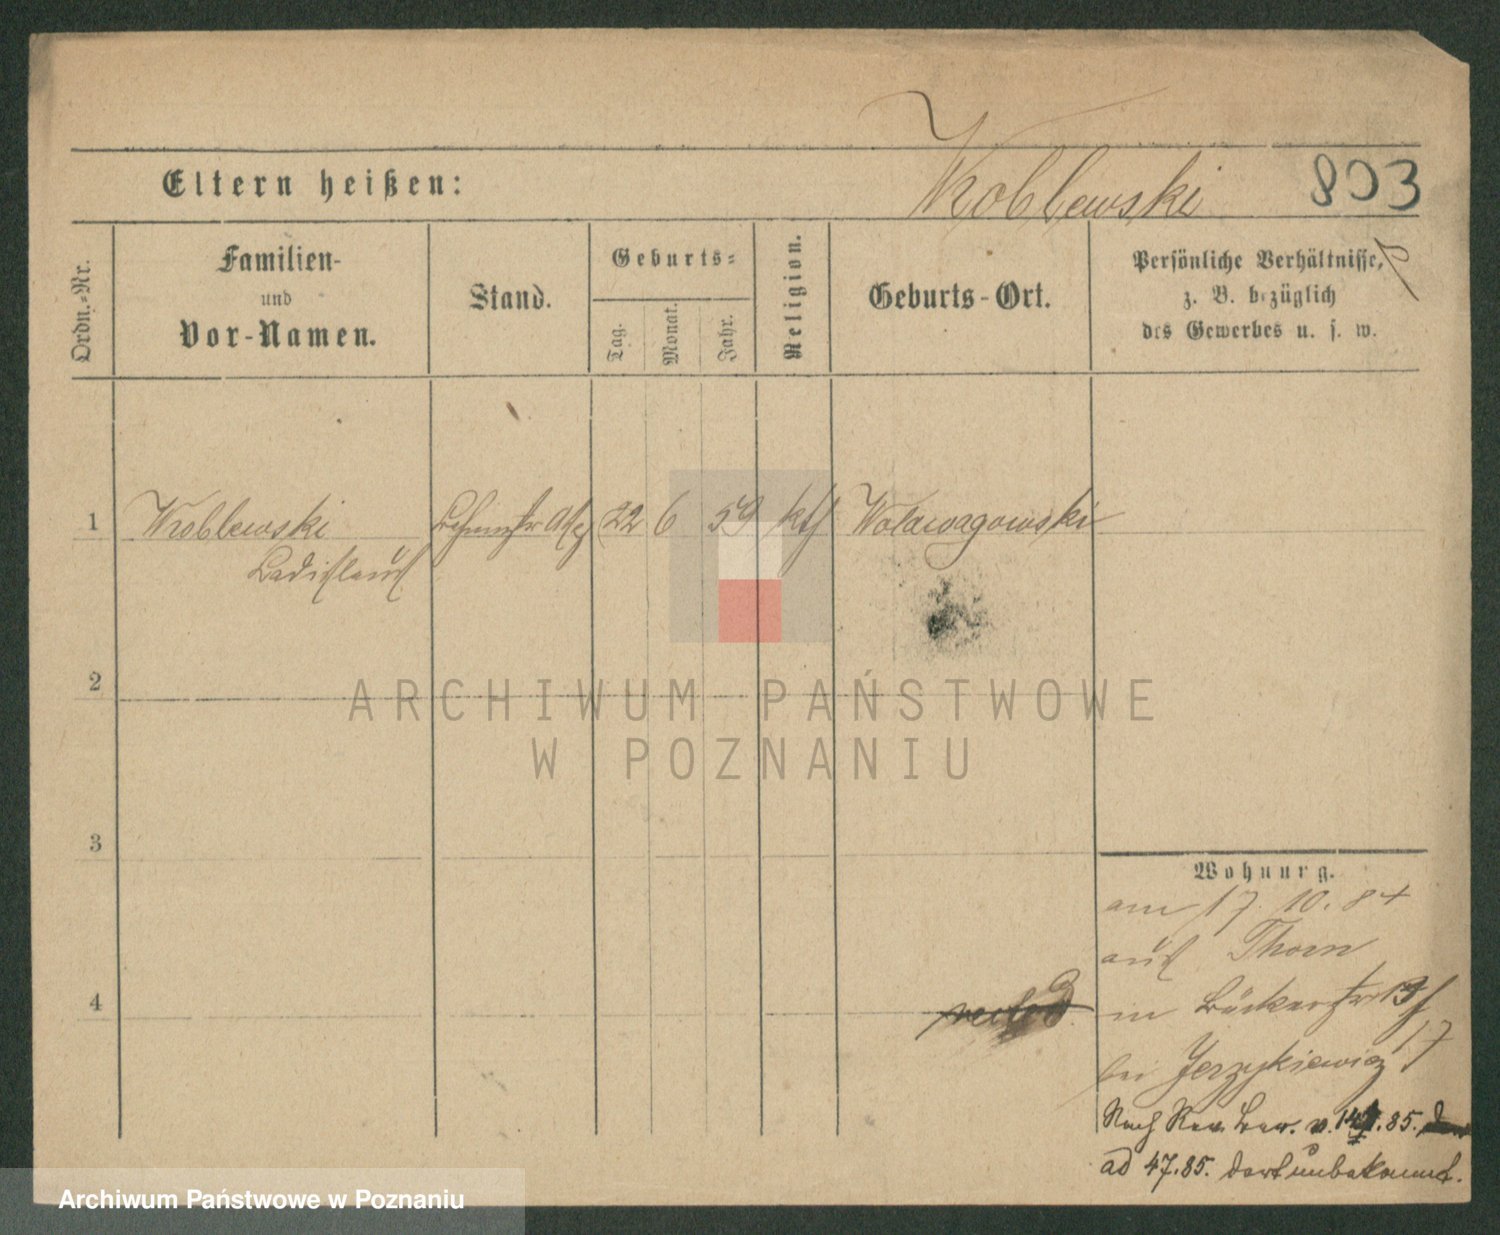 Wroblewski 803
Eltern heißen:
Ordn.-Nr.
Familien-
und
Vor-Namen.
Stand.
Geburts-
Tag.
Monat.
Jahr.
Religion.
Geburts-Ort.
Persönliche Verhältnisse,
z. B. bezüglich
des Gewerbes u. s. w.
1 Wroblewski 22 6 59 kth
Ladislaus
2
ARCHIWUM PAŃSTWOWE
W POZNANIU
3
4
Wohnung.
am 17. 10. 84
aus Thorn
in Bäckerstr
bei Jerzykiewicz 17
Nach Rev. Ber. v. 85.
ad 47.85. dort unbekannt.
Archiwum Państwowe w Poznaniu